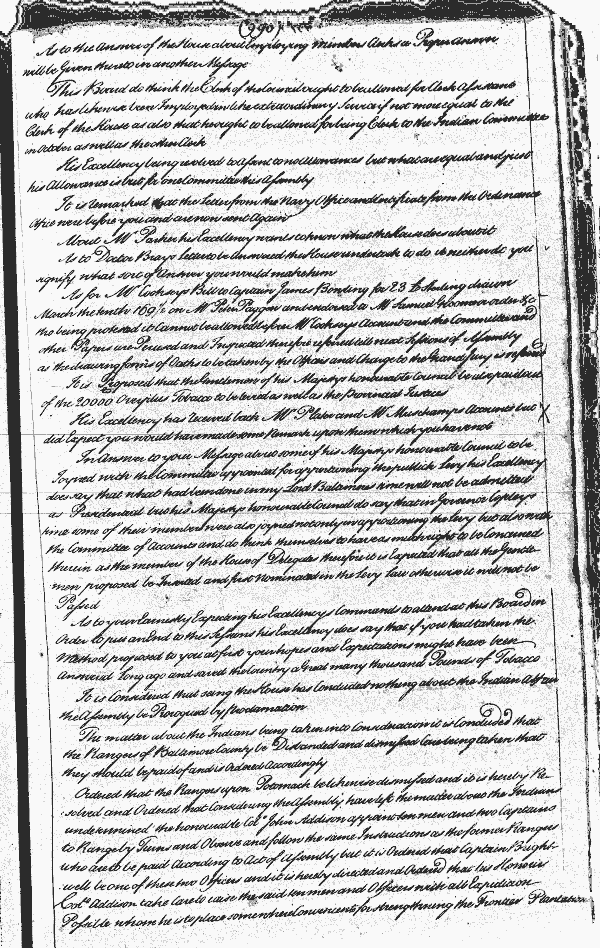 (290)
As to the Answer of the House about Employing Minders Clerks a Proper Answer
will be Given thereto in another Message
This Board do think the Clerk of the Councill ought to be allowed for Clerk Assistant
who has likewise been Imployed in the extraordinary Service if not more equal to the
Clerk of the House as also that he ought to be allowed for being Clerk to the Indian Committee
in October as well as the other Clerk
His Excellency being resolved to assent to no allowances but what are equal and just
his Allowance is but for one Committee this Assembly
It is remarked that the Letter from the Navy Office and Certificate from the Ordinance
Office were before you and are now sent Again
About Mr Parker his Excellency wants to know what the House does about it
As to Doctor Brays Letter to be Answered the House undertook to do it neither do you
signify what sort of Answer you would make him
As for Mr Cockseys Bill to Captain James Bonding for 23 £ Sterling drawn
March the tenth 169/2 on Mr Peter Paggen and endorsed to Mr Samuel Groome or order &c
the being protested it Cannot be allowed before Mr Cockseys Account and the Committees and
other Papers are Perused and Inspected therefore referred till next Sessions of Assembly
as the drawing forms of Oaths to be taken by the Officers and Charge to the Grand Jury is referred
It is Proposed that the Gentlemen of his Majestys honourable Council be also paid out
of the 20000 Overplus Tobacco to be levied as well as the Provincial Justices
His Excellency has received back Mr Plater and Mr Muschamps Accounts but
did Expect you would have made some Remark upon them which you have not
In Answer to your Message about some of his Majestys honourable Council to be
Joyned with the Committee appointed for apportioning the publick Levy his Excellency
does say that what had been done in my Lord Baltimores time will not be admitted
as Presidented but his Majestys honourable Council do say that in Governor Copleys
time some of their members were also joyned not only in apportioning the Levy but also with
the Committee of Accounts and do think themselves to have as much right to be Concerned
therein as the members of the House of Delegates therefore it is Expected that all the Gentle-
men proposed be Inserted and first Nominated in the Levy Law otherwise it will not be
Passed
As to your Earnestly Expecting his Excellencys Commands to attend at this Board in
Order to put an End to this Sessions his Excellency does say that if you had taken the
Method proposed to you at first your hopes and Expectations might have been
Answered Long ago and saved the Country a Great many thousand Pounds of Tobacco
It is Considered that seeing the House has Concluded nothing about the Indian Affair
the Assembly be Prorogued by Proclamation
The matter about the Indians being taken into Consideration it is Concluded that
the Rangers of Baltimore County be Disbanded and dismissed Care being taken that
they should be paid off and is Ordered Accordingly
Ordered that the Rangers upon Potomack be likewise dismissed and it is hereby Re-
solved and Ordered that Considering the Assembly have left the matter about the Indians
undetermined the honourable Colo John Addison appoint ten men and two Captains
to Range by Turns and Observe and follow the same Instructions as the former Rangers
who are to be paid According to Act of Assembly but it is Ordered that Captain Bright-
well be one of these two Officers and it is hereby directed and Ordered that his Honour
Colo Addison take Care to raise the said ten men and Officers with all Expedition
Possible whom he is to place somewhere Convenient for strengthening the Frontier Plantations